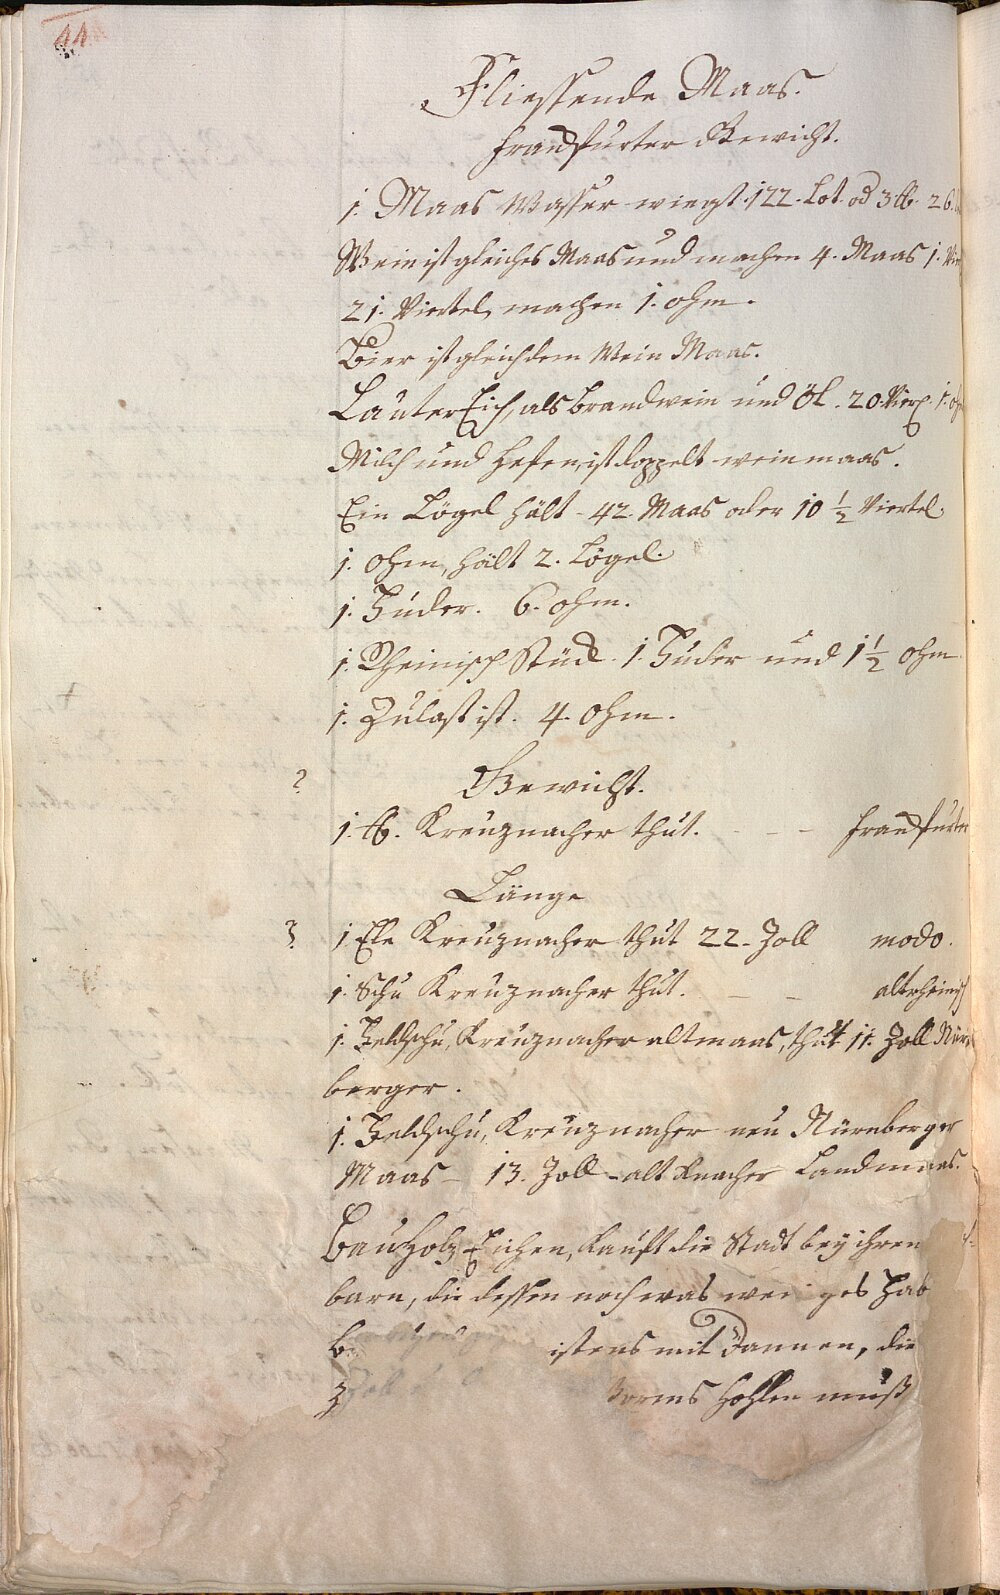 44
Fliessende Maas.
Franckfurter Gewicht.
1. Maas Wasser wiegt. 122. Lot. od 3 ℔. 26.
Wein ist gleiches Maas und machen 4. Maas 1.
21. Viertel, machen 1. Ohm.
Bier ist gleich dem Wein Maas.
Lauter Eich, als Brandwein und Öl. 20. 1.
Milch und Hefen, ist doppelt weinmaas.
Ein Lögel hält - 42. Maas oder 10 1/2 Viertel.
1. Ohm, hält 2. Lögel.
1. Fuder. 6. Ohm.
1. Rheinisch Stück. 1. Fuder und 1 1/2 Ohm
1. Zulast ist. 4. Ohm.
2 Gewicht.
1. ℔. Kreuznacher thut. - - - Franckfurter
Länge
3 1 Ele Kreuznacher thut 22. Zoll modo.
1. Schu Kreuznacher thut. - - altrheinisch
1. Feldschu, Kreuznacher altmaas, thut 11. Zoll Nürn
berger.
1. Feldschu, Kreuznacher neu Nürnberger
Maas - 13. Zoll - alt Landmaas.
Bauholz Eichen, kauft die Stadt bey ihren
barn, die dessen noch was weniges hab
istens mit Dannen, die
Worms hohlen muß